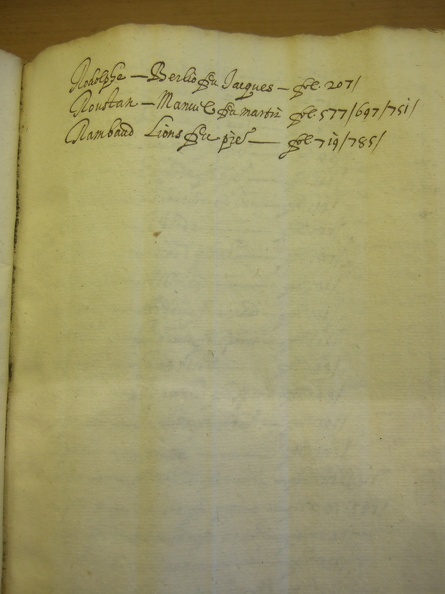 Rodolphe – Berlio feu Jacques – fol. 207/
Roustan – Manuel feu martin fol. 577/697/751/
Rambaud Lions feu pierre — fol. 719/785/